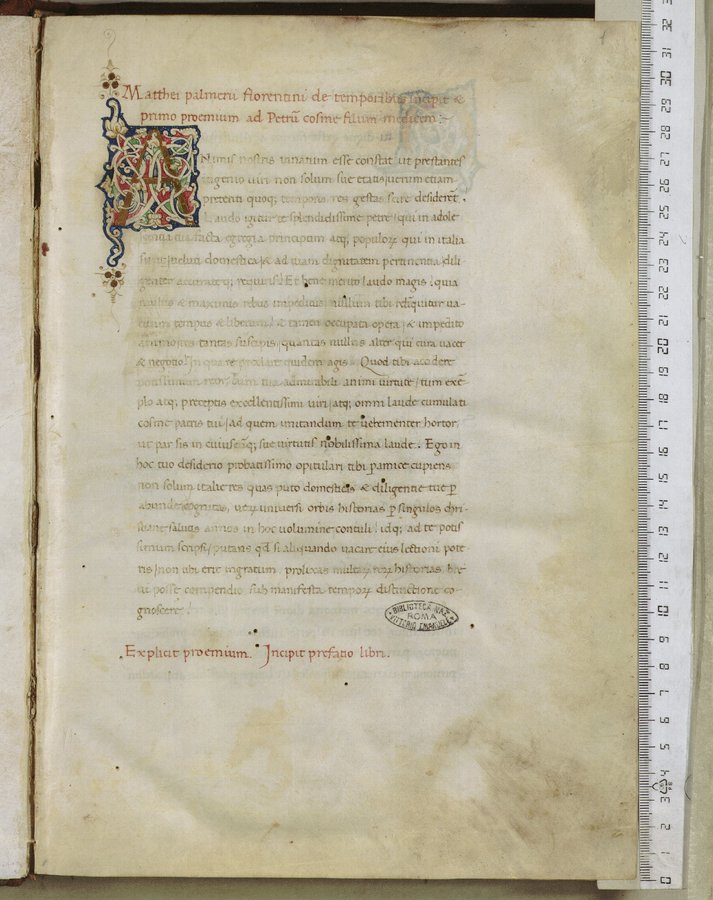 Matthei palmerii florentini de temporibus incipit &
primo proemium ad Petrū cosme filium medicem.
Animis nostris innatum esse constat ut prestantes
ingenio viri non solum sue etatis uerum etiam
preteriti quoq; temporis res gestas scire desiderent.
Laudo igitur te splendidissime petre qui in adole
scentia tua facta egregia principum atq; populoꝝ qui in italia
sunt uelut domestica & ad tuam dignitatem pertinentia dili
genter requiris. Et hoc laudo magis quia
multis & maximis rebus impedito nullum tibi relinquitur ua
cuum tempus & liberum & tamen occupata opera & impedito
animo res tantas suscipis quantas nullus alter qui cum uacet
& negotio. In qua re preclare quidem agis. Quod tibi accidere
cum tua admirabili animi uirtute tum exē
plo atq; preceptis excellentissimi uiri atq; omni laude cumulati
cosme patris tui ad quem imitandum te uehementer hortor
ut par sis in sue uirtutis nobilissima laude. Ego in
hoc tuo desiderio probatissimo opitulari tibi cupiens
non solum italie res quas puto domesticas & diligentie tue ꝑ
abunde cognitas, uerum uniuersi orbis historias ꝑ singulos chri
stiane salutis annos in hoc uolumine contuli idq; ad te potis
simum scripsi putans qd si aliquando uacare eius lectioni pote
ris non tibi erit ingratum prolixas multaꝝ reꝝ historias bre
ui posse compendio sub manifesta temporꝝ distinctione co-
gnoscere.
BIBLIOTECA NAZ
ROMA
VITTORIO EMANUELE
Explicit proemium. Incipit prefatio libri.